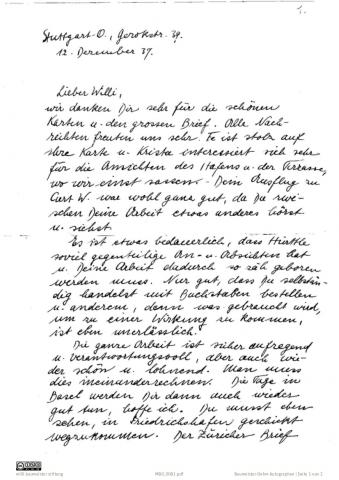 1.
Stuttgart-O., Gerokstr. 39.
12. Dezember 37.
Lieber Willi,
wir danken Dir sehr für die schönen
Karten u. den grossen Brief. Alle Nach-
richten freuten uns sehr. Fe ist stolz auf
ihre Karte u. Krista interessiert sich sehr
für die Ansichten des Hafens u. der Terrasse,
wo wir einst sassen. Dein Ausflug zu
Curt W. war wohl ganz gut, da Du zwi-
schen Deine Arbeit etwas anderes hörst
u. siehst.
Es ist etwas bedauerlich, dass Hürttle
soviel gegenteilige An- u. Absichten hat
u. Deine Arbeit dadurch so zäh geboren
werden muss. Nur gut, dass Du selbstän-
dig handelst mit Buchstaben bestellen
u. anderem, denn was gebraucht wird,
um zu einer Wirkung zu kommen,
ist eben unerlässlich.
Die ganze Arbeit ist sicher aufregend
u. verantwortungsvoll, aber auch wie-
der schön u. lohnend. Man muss
dies ineinanderrechnen. Die Tage in
Basel werden Dir dann auch wieder
gut tun, hoffe ich. Du musst eben
sehen, in Friedrichshafen geschickt
wegzukommen. Der Züricher Brief
willi baumeister stiftung
Baumeister Online Autographen | Seite 1 von 2